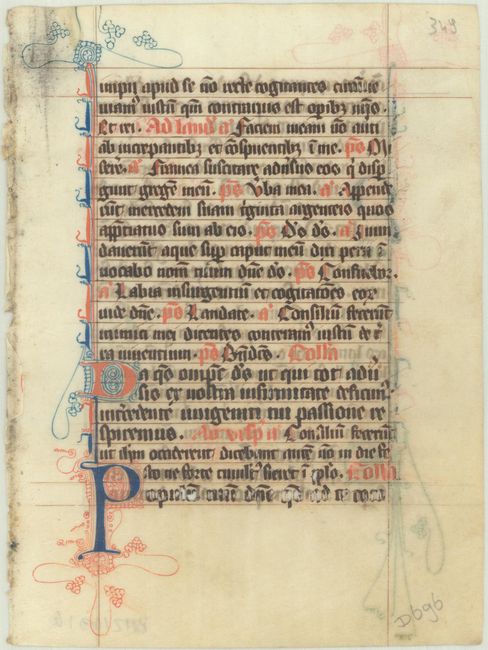 impij apud se nō recte cogitantes circūue
niam⁹ iustū qm̄ contrarius est opibꝫ nr̄is.
Ad laud̄ a̅ Faciem meam nō auti
ab increpantibꝫ et ī me. p̄s
sere. a̅ Framea suscitare aduersus eos q̄ disp
gunt gregē meū. p̄s V̄ba mea. a̅ Append
erūt mercedem suam t̄ginta argenteis quos
appreciatus sum ab eis. p̄s D̄s d̄s. a̅ Inun
dauerūt aque sup̄ caput meū dixi perij ī
uocabo nom̄ tuum dn̄e d̄s. p̄s Confitebor.
a̅ Labia insurgentiū et cogitatōes eorꝫ
uide dn̄e. p̄s Laudate. a̅ Consiliū fecerūt
inimici mei dicentes conteram⁹ iustū de t̄
ra uiuentium. p̄s Coll̄a
Da q̄s omp̄t d̄s ut qui tot adū
sis ex nostra infirmitate deficim⁹
intercedente unigeniti tui passione re
spiremus. Ad vesp̄ a̅ Consiliū fecerūt
ut ih̄m occiderent dicebant autē nō in die fe
sto ne forte tumult⁹ fieret ī pp̄lo. Coll̄a
349
D696